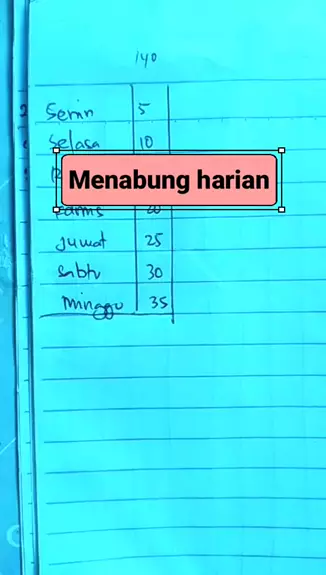 140
Senin 5
Selasa 10
Menabung harian
20
Jumat 25
Sabtu 30
Minggu 35